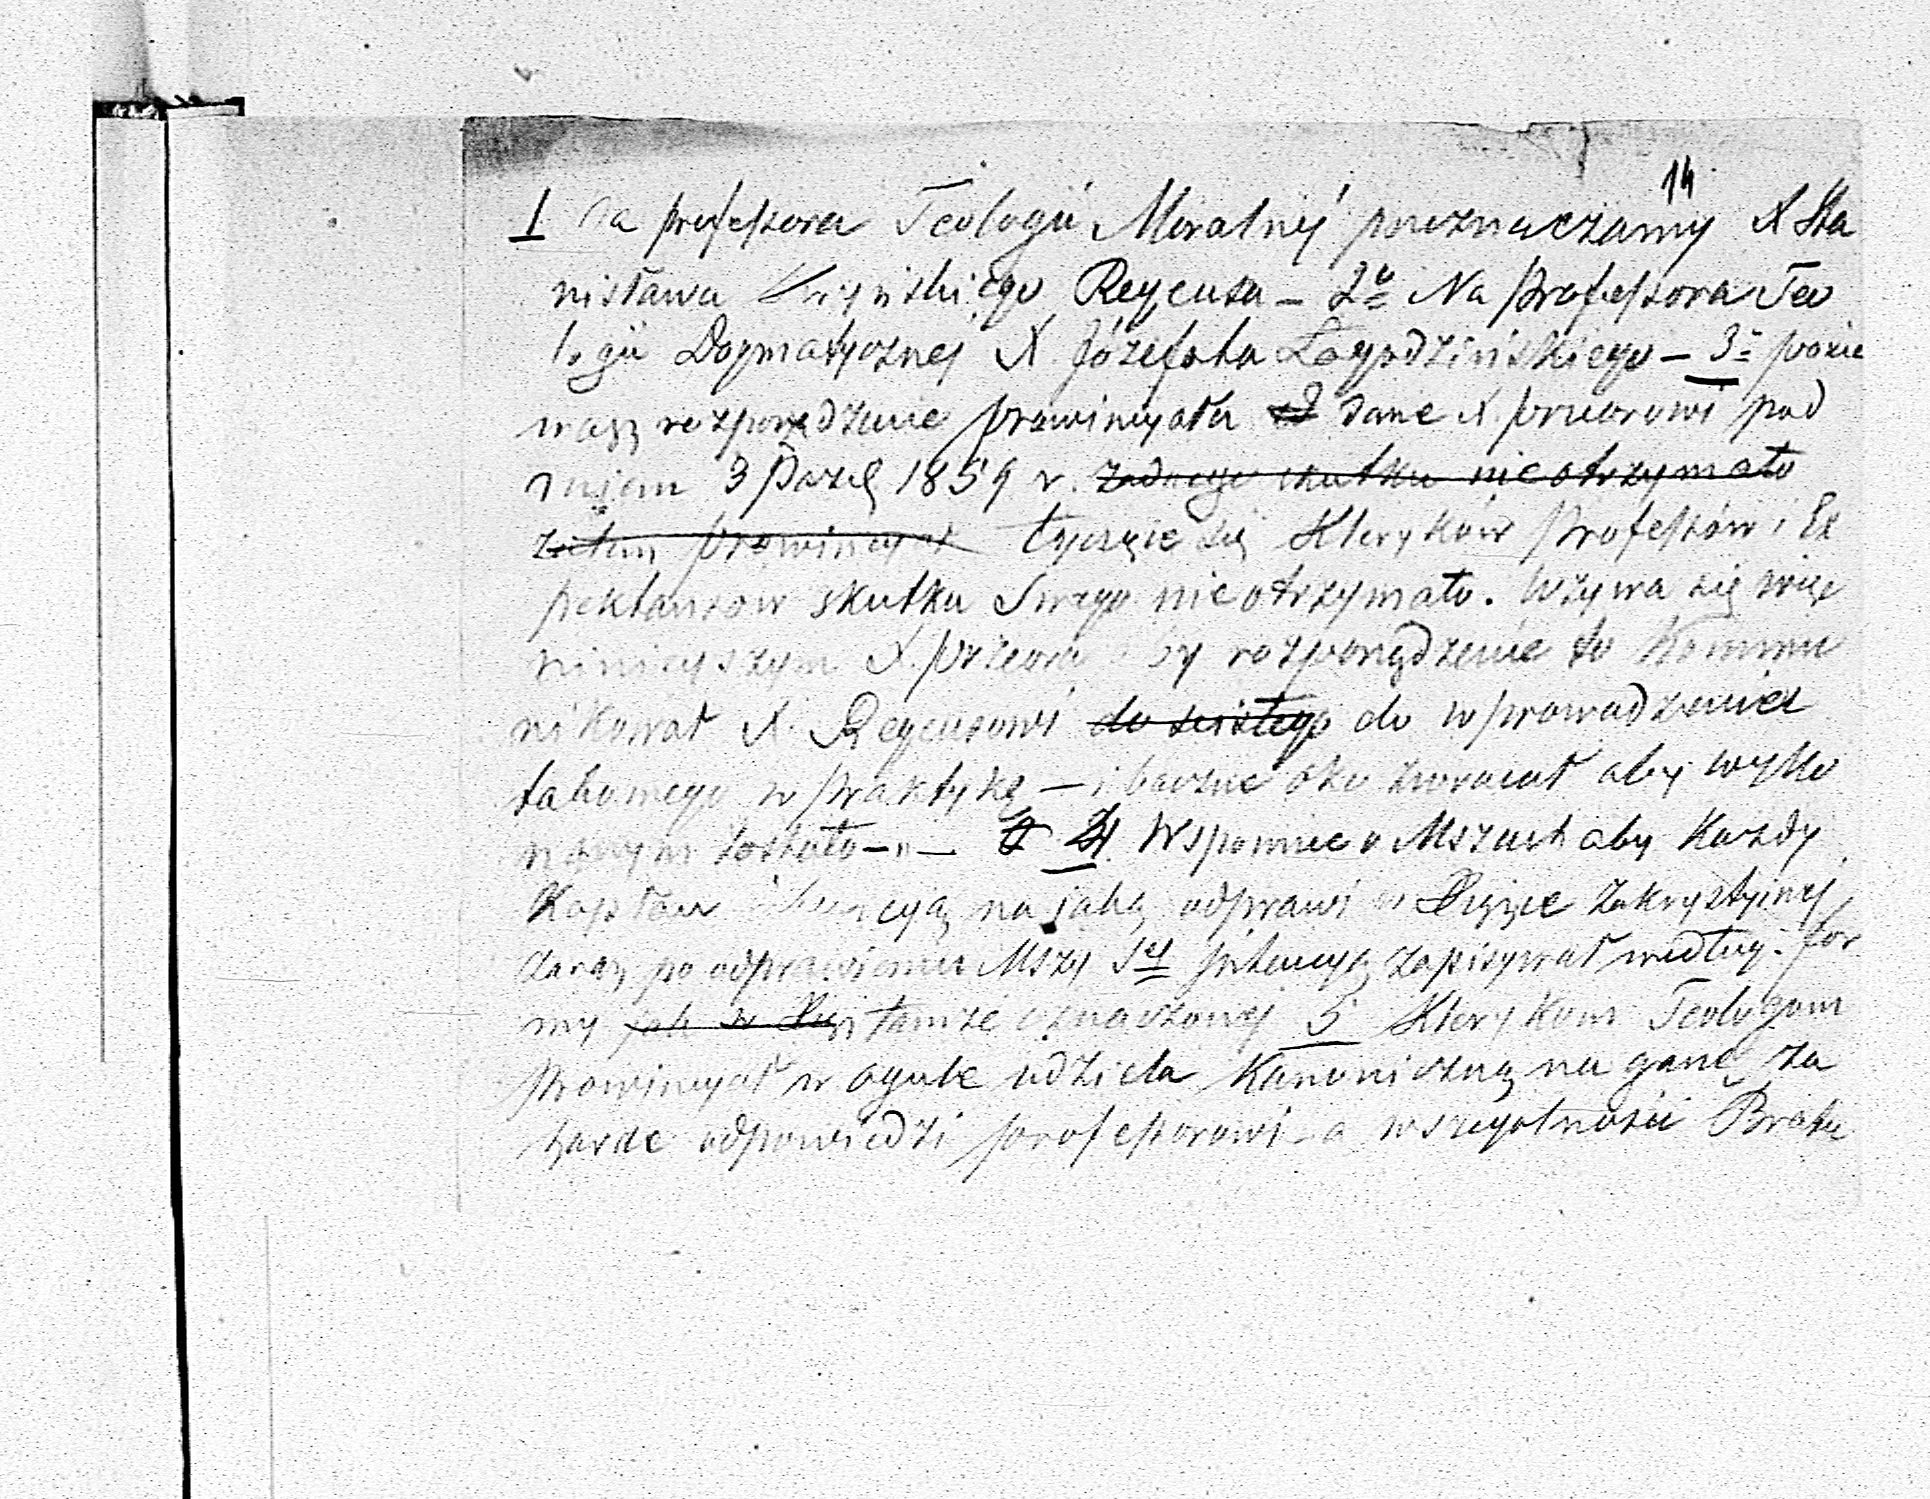 14
1 Na professora Teologii Moralnej przeznaczamy X Sta
nisława Regensa – 2o Na Professora Teo
logii Dogmatycznej X. Józefata Łagodzińskiego – 3o ponie
waż rozporządzenie prowincyała dane X. przeorowi pod
dniem 3 Paźd 1859 r. żadnego skutku nie otrzymało
zatem prowincyał tyczące się Kleryków Professów i Ex
pektantów skutku Swego nie otrzymało. Wzywa się więc
niniejszym X. przeora by rozporządzenie to kommu
nikował X. Regensowi do ścisłego do wprowadzenia
takowego w praktykę – i baczne oko zwracał aby wyko
nanym zostało – " – 4. Wspomnieć o Mszach aby Każdy
Kapłan intencyą na jaką odprawi w Księdze Zakrystyjnej
zaraz po odprawieniu Mszy Sej intencyą zapisywał według for
my jak w Księ tamże oznaczonej 5 Klerykom Teologom
prowincyał w ogule udziela Kanoniczną naganę za
harde odpowiedzi professorowi a wszczególności Bratu